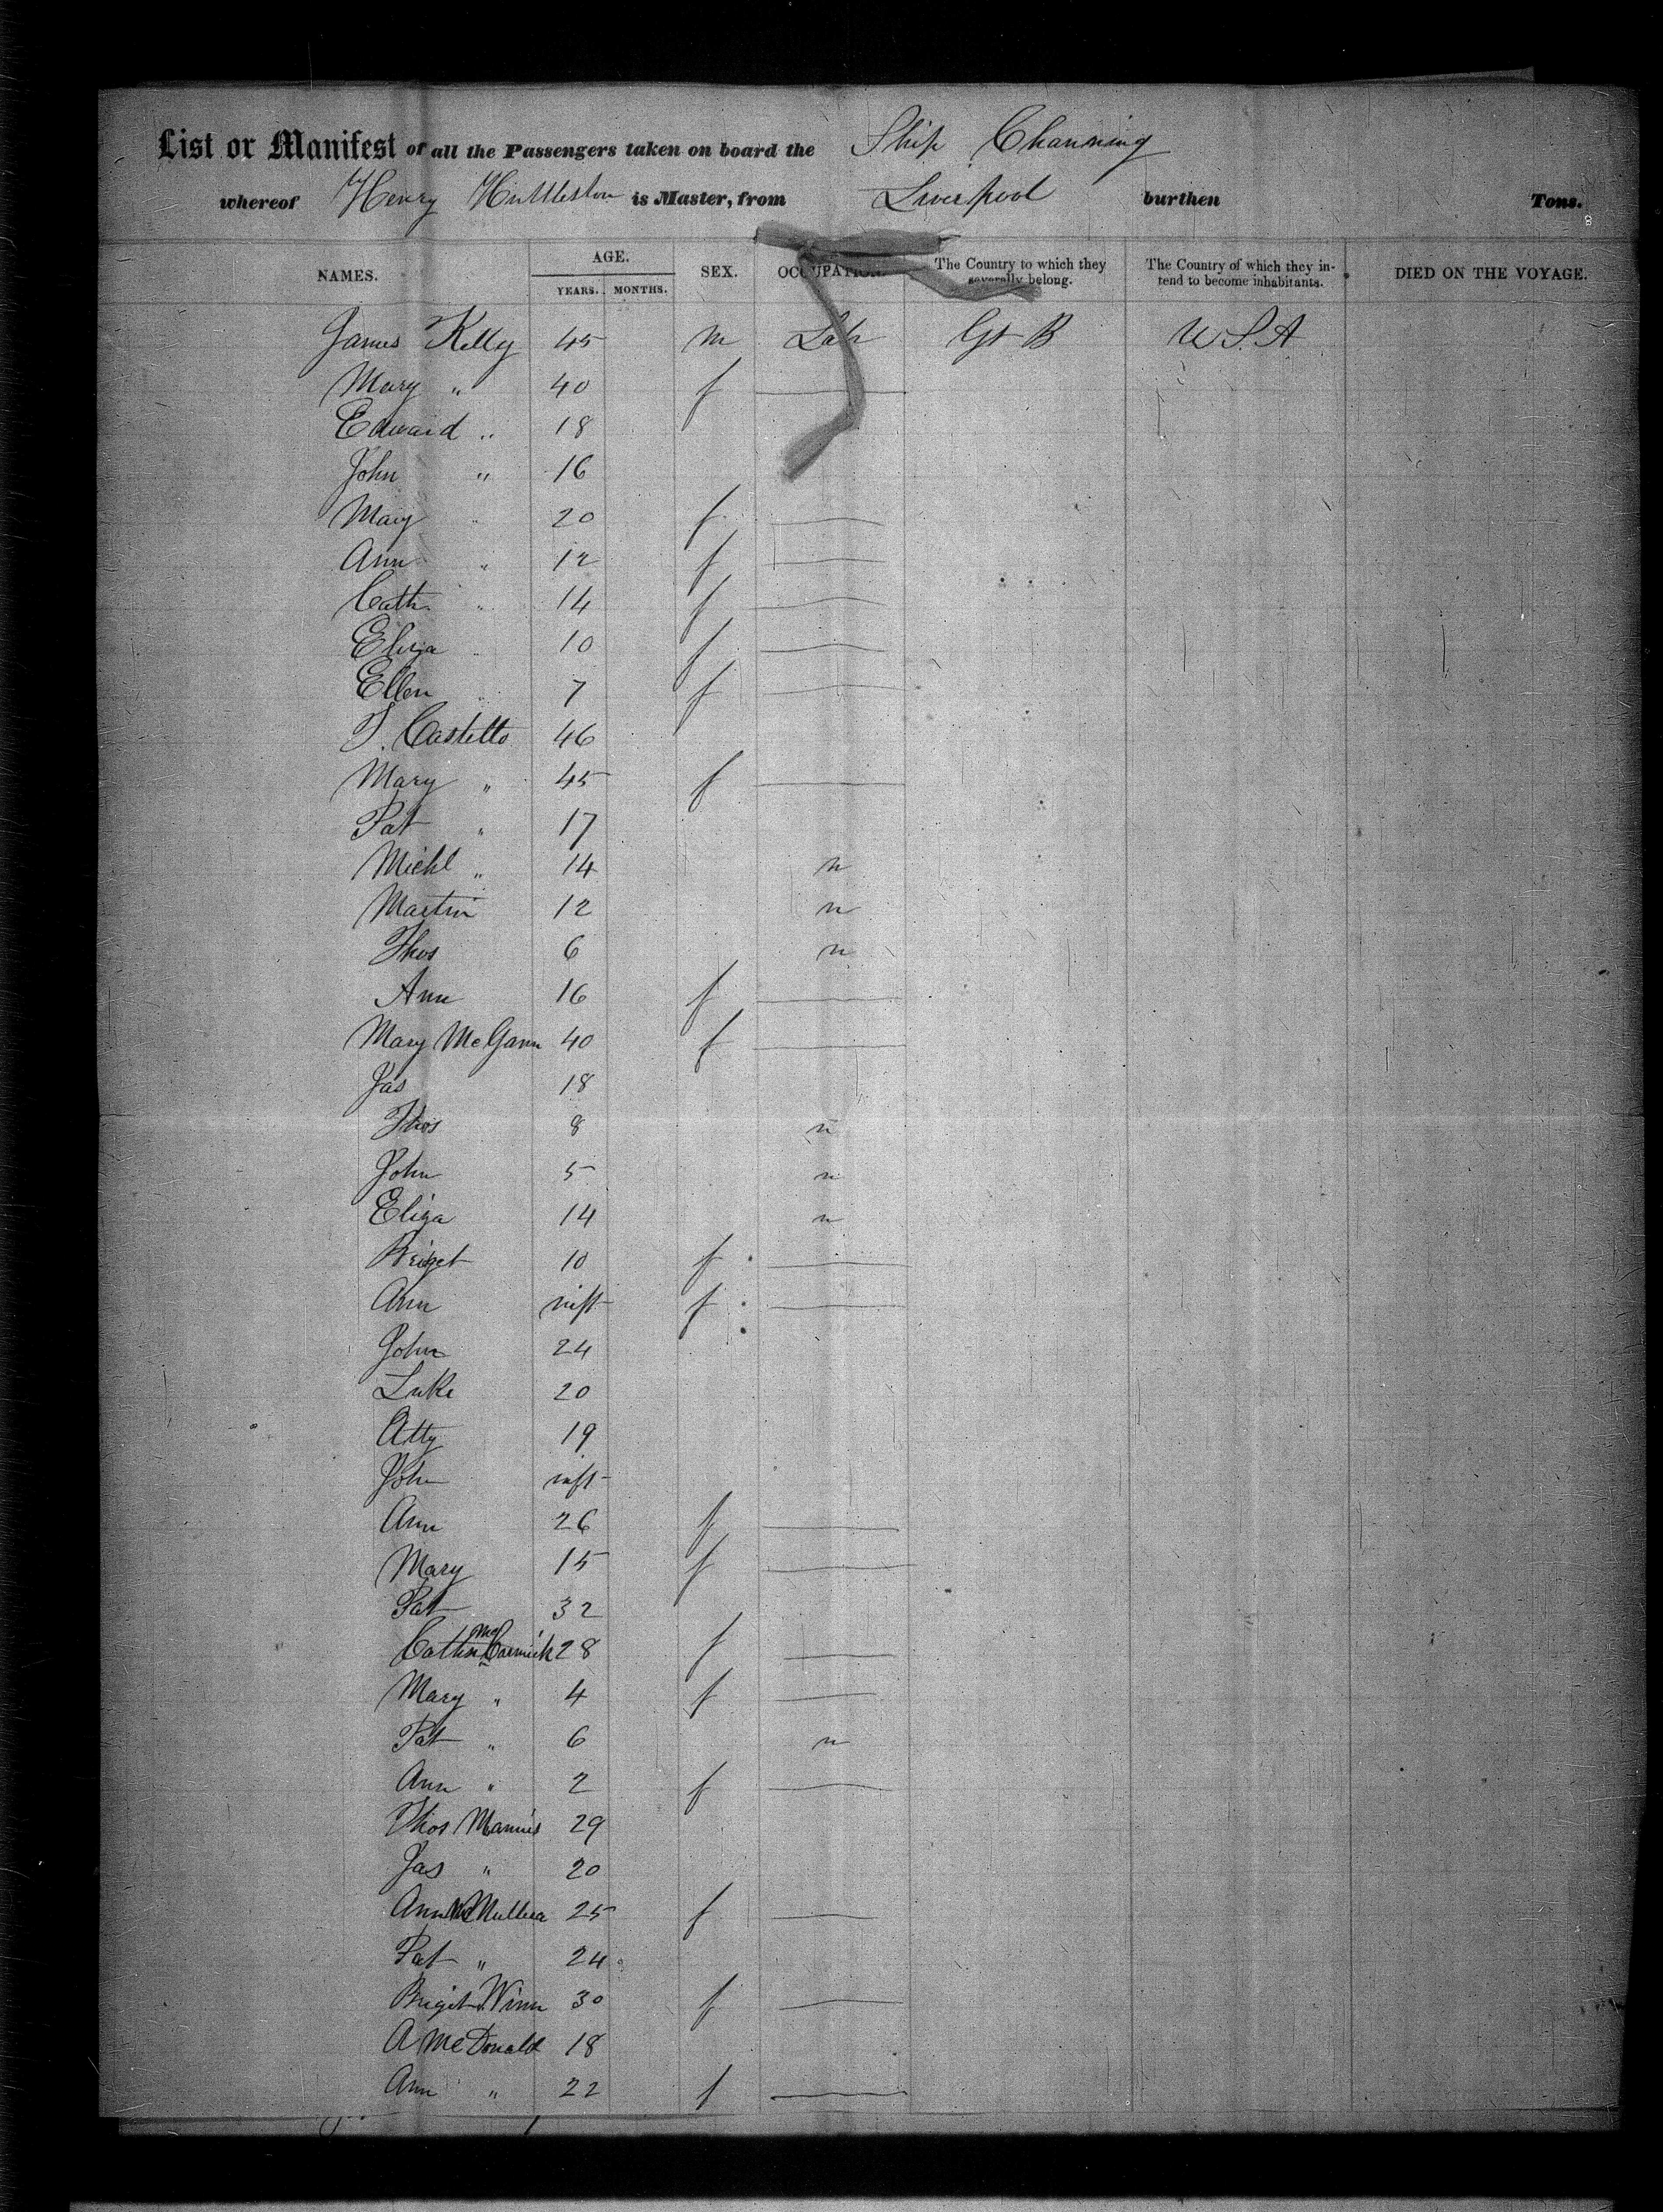 List or Manifest of all the Passengers taken on board the Ship Channing
whereof Henry Huttleston is Master, from Liverpool burthen Tons.
NAMES. AGE. YEARS. MONTHS. SEX. OCCUPATION. The Country to which they severally belong. The Country of which they intend to become inhabitants. DIED ON THE VOYAGE.
James Kelly 45 m Lab Gt B U.S.A
Mary " 40 f
Edward " 18
John " 16
Mary " 20 f
Ann " 12 f
Cath " 14 f
Eliza " 10 f
Ellen " 7 f
Castello 46
Mary " 45 f
Pat " 17
Michl " 14 n
Martin 12 n
Thos 6 n
Ann 16 f
Mary McGann 40 f
Jas 18
Thos 8 n
John 5 n
Eliza 14 n
Briget 10 f
Ann inft f
John 24
Luke 20
Atty 19
John inft
Ann 26 f
Mary 15 f
Pat 32
Cathn McCormick 28 f
Mary " 4 f
Pat " 6 n
Ann " 2 f
Thos Mannis 29
Jas " 20
Ann 25 f
Pat " 24
Briget Winn 30 f
A McDonald 18
Ann " 22 f